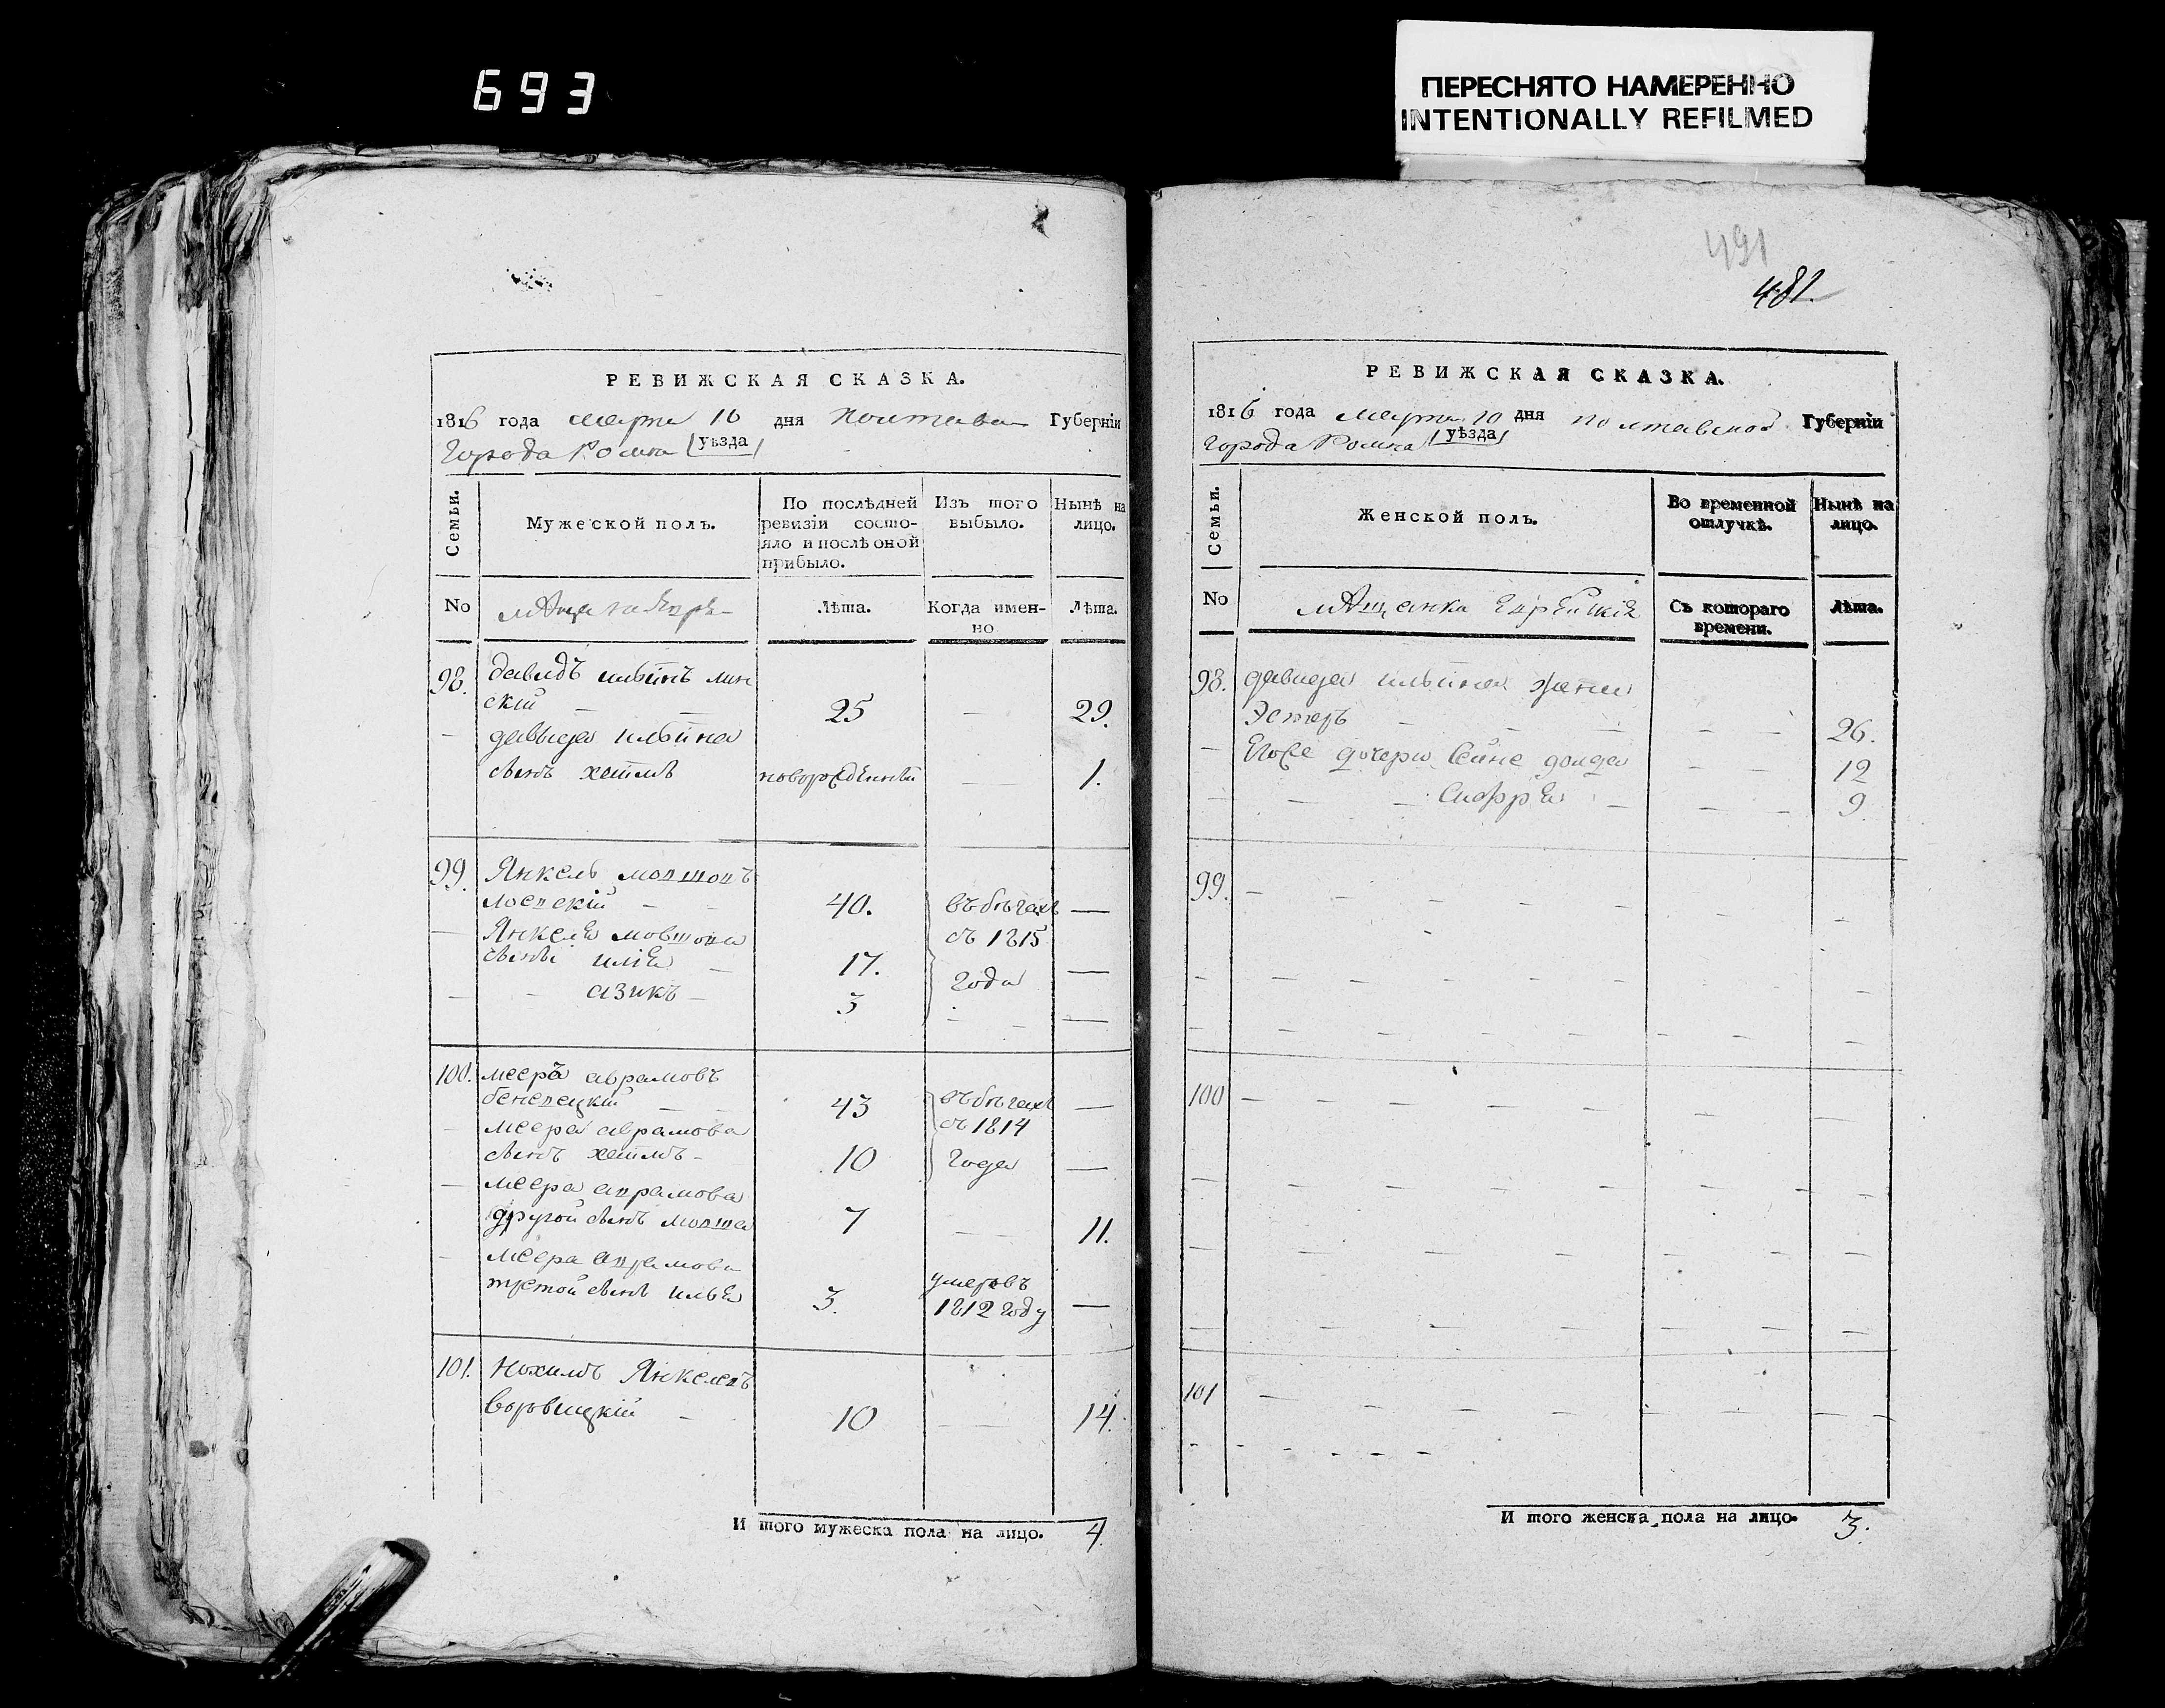 693
ПЕРЕСНЯТО НАМЕРЕННО
INTENTIONALLY REFILMED
РЕВИЖСКАЯ СКАЗКА.
1816 года марта 10 дня Полтавск Губернїи
Города Ромна (уѣзда)
Семьи.
Мужеской полъ.
По послѣдней
ревизїи состо-
яло и послѣ оной
прибыло.
Изъ того
выбыло.
Нынѣ на
лицо.
No
Лѣта.
Когда имен-
но
Лѣта.
98. давидъ ильинъ мин
скїй — — 25 — 29.
— давида ильина
сынъ хаимъ новорожденный — 1.
99. Янкель мовшовъ
лосвскїй — — 40. въ бѣгахъ —
— Янкеля мовшова съ 1815
сыны илїя — 17. года —
— — азикъ — 3 — — —
100. мееръ аврамовъ
беневецкїй — — 43 въ бѣгахъ —
— меера аврамова съ 1814
сынъ хаимъ - 10 года —
— меера аврамова
другой сынъ мовша 7 — — 11.
— меера аврамова
третой сынъ илья 3. умеръ въ
1812 году —
101. Нохимъ Янкелевъ
боровицкїй — 10 — 14.
И того мужеска пола на лицо. 4.
491
481.
РЕВИЖСКАЯ СКАЗКА.
1816 года Марта 10 дня полтавской Губернїи
города Ромна (уѣзда)
Семьи.
Женской полъ.
Во временной
отлучкѣ.
Нынѣ на
лицо.
No мѣщанка Еврейскїя
Съ котораго
времени.
Лѣта.
98. давида ильина жена
Эстеръ — — — — 26.
— Его дочери — — 12
— — — — — — 9
99. —
100 —
101 —
И того женска пола на лицо. 3.